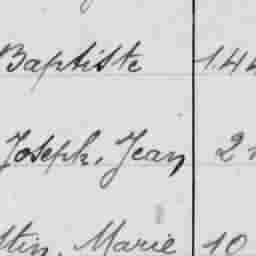 Baptiste 144
Joseph, Jean 2
tin, Marie 10